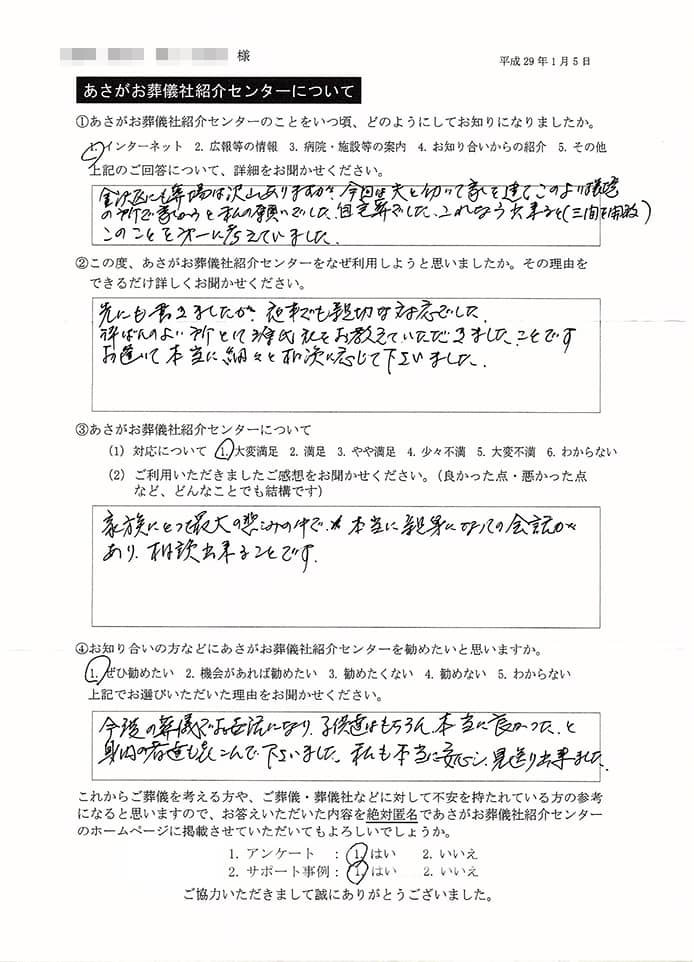 様
平成 29 年 1 月 5 日
あさがお葬儀社紹介センターについて
①あさがお葬儀社紹介センターのことをいつ頃、どのようにしてお知りになりましたか。
1. インターネット 2. 広報等の情報 3. 病院・施設等の案内 4. お知り合いからの紹介 5. その他
上記のご回答について、詳細をお聞かせください。
金沢区にも葬場は沢山ありますが、今回は夫と
の所で と私の願いでした。自宅葬でした。
このことを第一に考えていました。
②この度、あさがお葬儀社紹介センターをなぜ利用しようと思いましたか。その理由を
できるだけ詳しくお聞かせください。
先にも書きましたが、夜中でも親切な対応でした。
評ばんのよい所として 社をお教えていただきましたことです
本当に細々と相談に応じて下さいました。
③あさがお葬儀社紹介センターについて
(1) 対応について 1. 大変満足 2. 満足 3. やや満足 4. 少々不満 5. 大変不満 6. わからない
(2) ご利用いただきましたご感想をお聞かせください。（良かった点・悪かった点
など、どんなことでも結構です）
家族にとって最大の悲しみの中で、本当に親身になっての会話が
あり、相談出来ることです。
④お知り合いの方などにあさがお葬儀社紹介センターを勧めたいと思いますか。
1. ぜひ勧めたい 2. 機会があれば勧めたい 3. 勧めたくない 4. 勧めない 5. わからない
上記でお選びいただいた理由をお聞かせください。
今後の葬儀でお世話になり、子供達はもちろん、本当に良かった、と
身内の者達も喜こんで下さいました。私も本当に安心し、見送り出来ました。
これからご葬儀を考える方や、ご葬儀・葬儀社などに対して不安を持たれている方の参考
になると思いますので、お答えいただいた内容を絶対匿名であさがお葬儀社紹介センター
のホームページに掲載させていただいてもよろしいでしょうか。
1. アンケート ： 1. はい 2. いいえ
2. サポート事例： 1. はい 2. いいえ
ご協力いただきまして誠にありがとうございました。